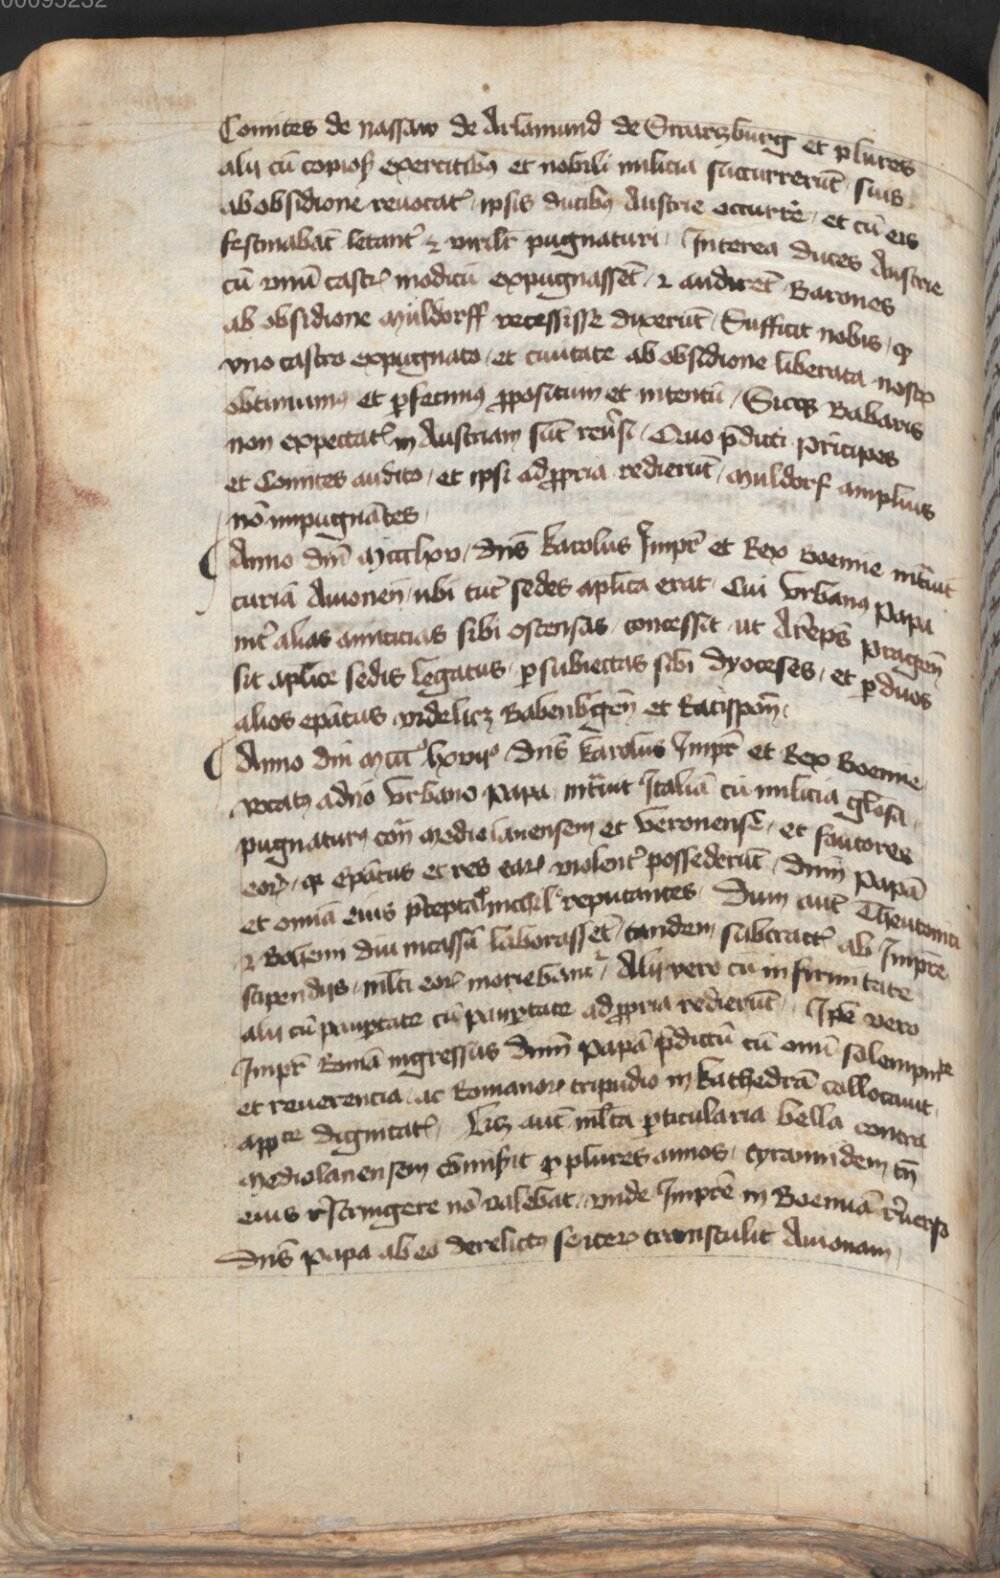 00095232
Comites de Nassaw de Arlamund de Swarczburg et plures
alij cū copioß exercitibꝫ et nobili milicia succurrerūt suis
ab obsidione reuocat᷒ ipsis ducibꝫ Austrie occurrē / et cū eis
festinabāt letant᷒ ⁊ virilit᷒ pugnaturi / Interea duces Austrie
cū vnū castꝝ modicū expugnassēt / ⁊ audirēt Barones
ab obsidione Muldorff recessisse dixerūt / Sufficit nobis / qꝫ
vno castro expugnato / et ciuitate ab obsidione liberata nostꝝ
obtinuimꝰ et ꝑfecimꝰ ꝓpositum et intentū / Sicqꝫ Babaris
non expectatꝭ in Austriam sūt reuˀsi / Quo p̄dicti principes
et Comites audito / et ipsi ad ꝓpria redierūt / Muldorf amplius
nō impugnātes /
Anno dnī Mccclxv / Dns̄ Karolus Impˀ et Rex Boemie intˀuit
curiā Auionen̄ / ubi tūc sedes apl̄ica erat / Cui Vrbanꝰ papa
intˀ alias amicicias sibi ostensas / concessit / ut Arēps̄ pragen̄
sit aplīce sedis legatus / ꝑ subiectas sibi dyoceses / et ꝑ duos
alios epātus videlicꝫ Babenbgen̄ et Ratispon̄ /
Anno dni Mccc lxvijᵒ Dns̄ Karolus Impˀ et Rex Boemie
vocatꝰ a dn̄o Vrbano papa / intˀuit Italiā cū milicia gl̄osa /
pugnaturꝰ contˀ Mediolanensem et Veronensē / et fautores
eoꝝ / qꝫ epātus et res eaꝝ violentˀ possederūt / Dnm̄ papā
et omīa eius p̄cepta nichilᵒ reputantes / Dum aūt Theutonici
⁊ Bohemi diu incassū laborassēt / tandem subtractꝭ ab Impˀe
stipendijs / ml̄ti eoꝝ moriebantˀ / Alij vero cū infirmitate
alij cū pauꝑtate cū pauꝑtate ad ꝓpria redierūt / Ip̄e vero
Impˀ Romā ingressus dnm̄ papā p̄dictū cū omī solempnitᵗᵉ
et reuerencia ac Romanoꝝ tripudio in kathedrā collocauit
app̄ᶜᵉ dignitatꝭ / Lꝫ aūt ml̄ta ꝑticularia bella contra
Mediolanensem cōmisit ꝓ plures annos / tyrannidem tn̄
eius rˀstringere nō valebat / vnde Impˀe in Boemiā rˀuerso
Dns̄ papa ab eo derelictꝰ se iteꝝ transtulit Auionam /